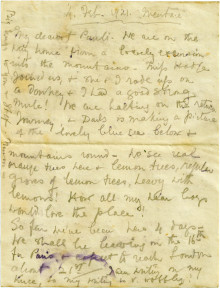 Feb. 1921.
My dearest Pauli. We are on the
home from a lovely excursion
into the mountains. Miss
joined us, & one & I rode up on
a Donkey & I had a good strong
Mule! We are halting on the
Journey & is making a picture
of the lovely blue sea below &
mountains round. We see real
orange trees here & lemon trees,
groves of lemon trees, heavy with
lemons! How all my dear boys
would love the place!
So far we've been here 4 days.
We shall be leaving on the 16th
for Paris, & to reach London
about 21st. I am writing on my
Knee, so my writing is v. wobbly!